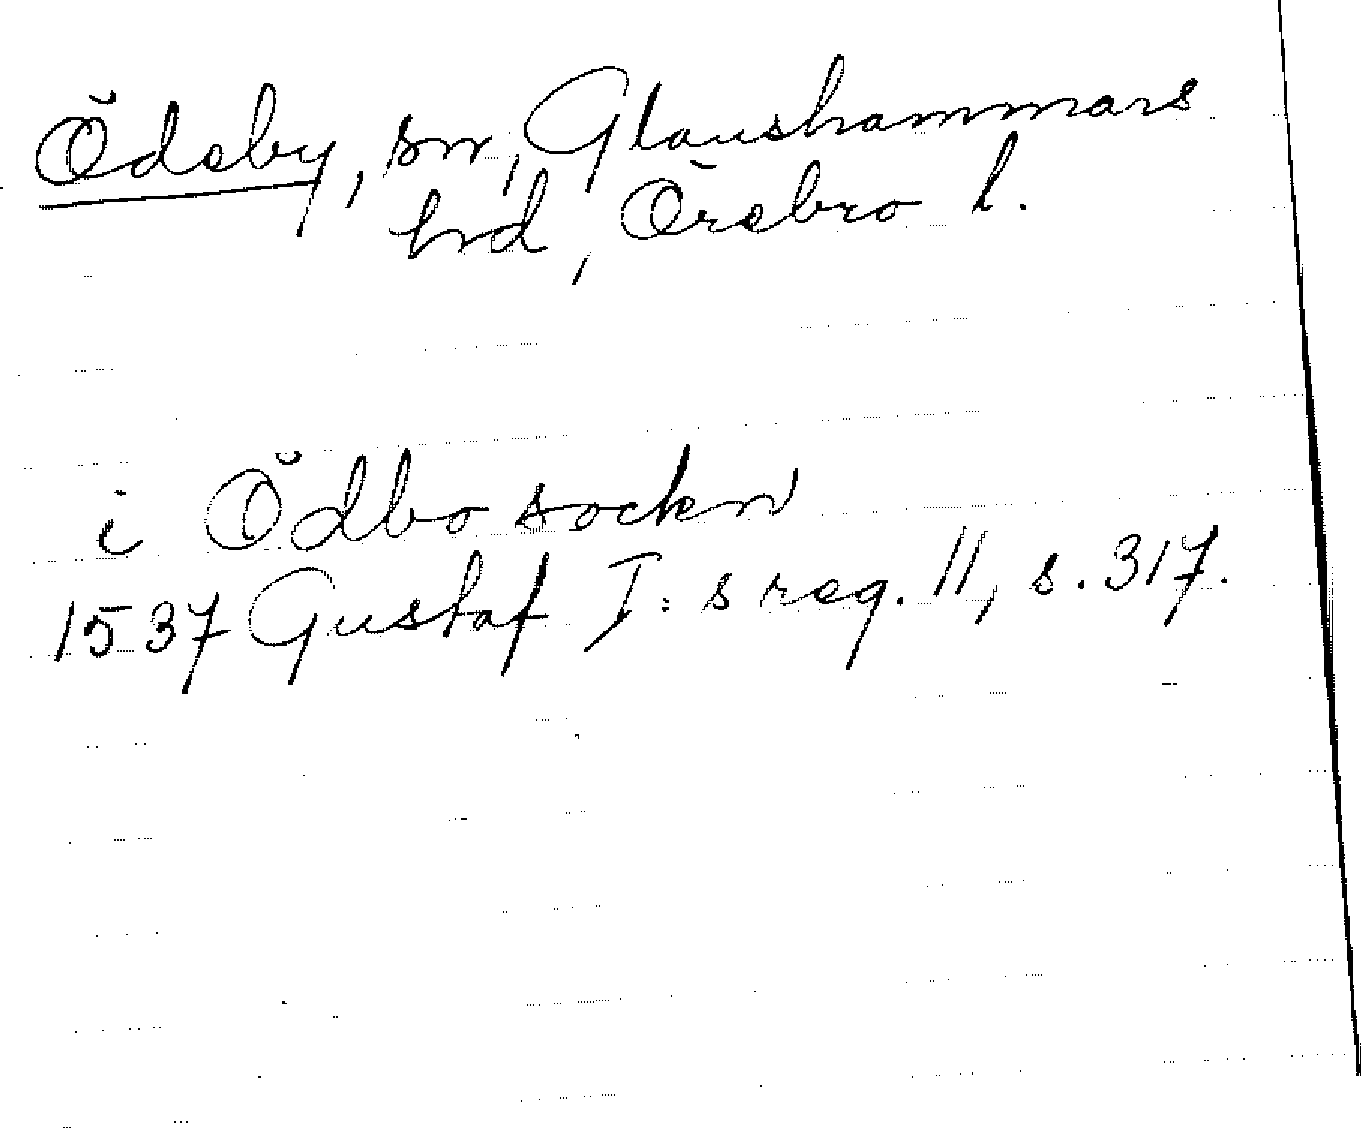 Ödeby, sn, Glanshammars
hrd, Örebro l.
i Ödbo sockn
1537 Gustaf I:s reg. 11, s. 317.